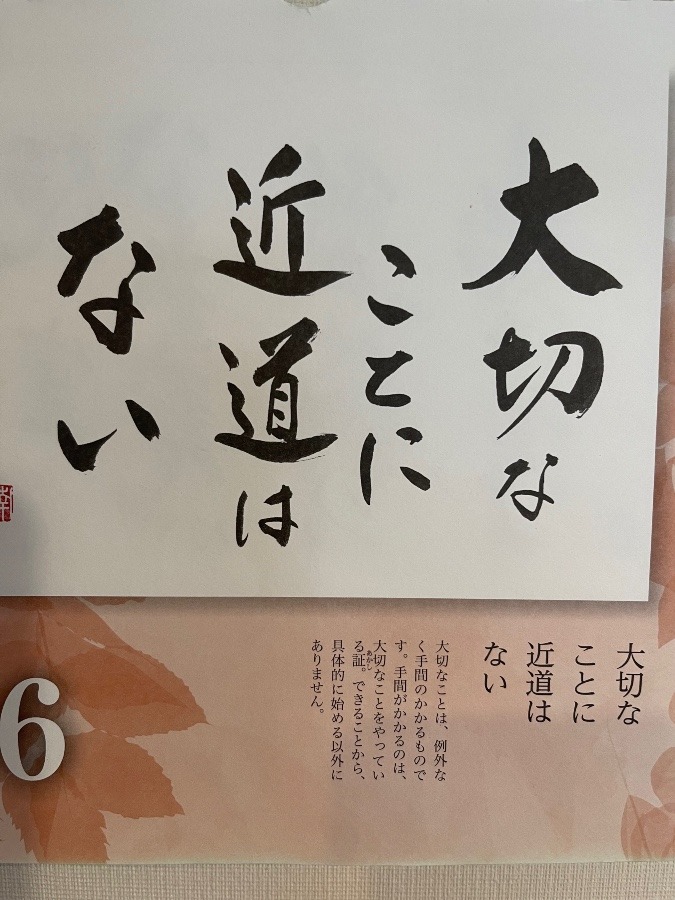 大切な
ことに
近道は
ない
大切な
ことに
近道は
ない
大切なことは、例外な
く手間のかかるもので
す。手間がかかるのは、
大切なことをやってい
る証。できることから、
あかし
具体的に始める以外に
ありません。
6